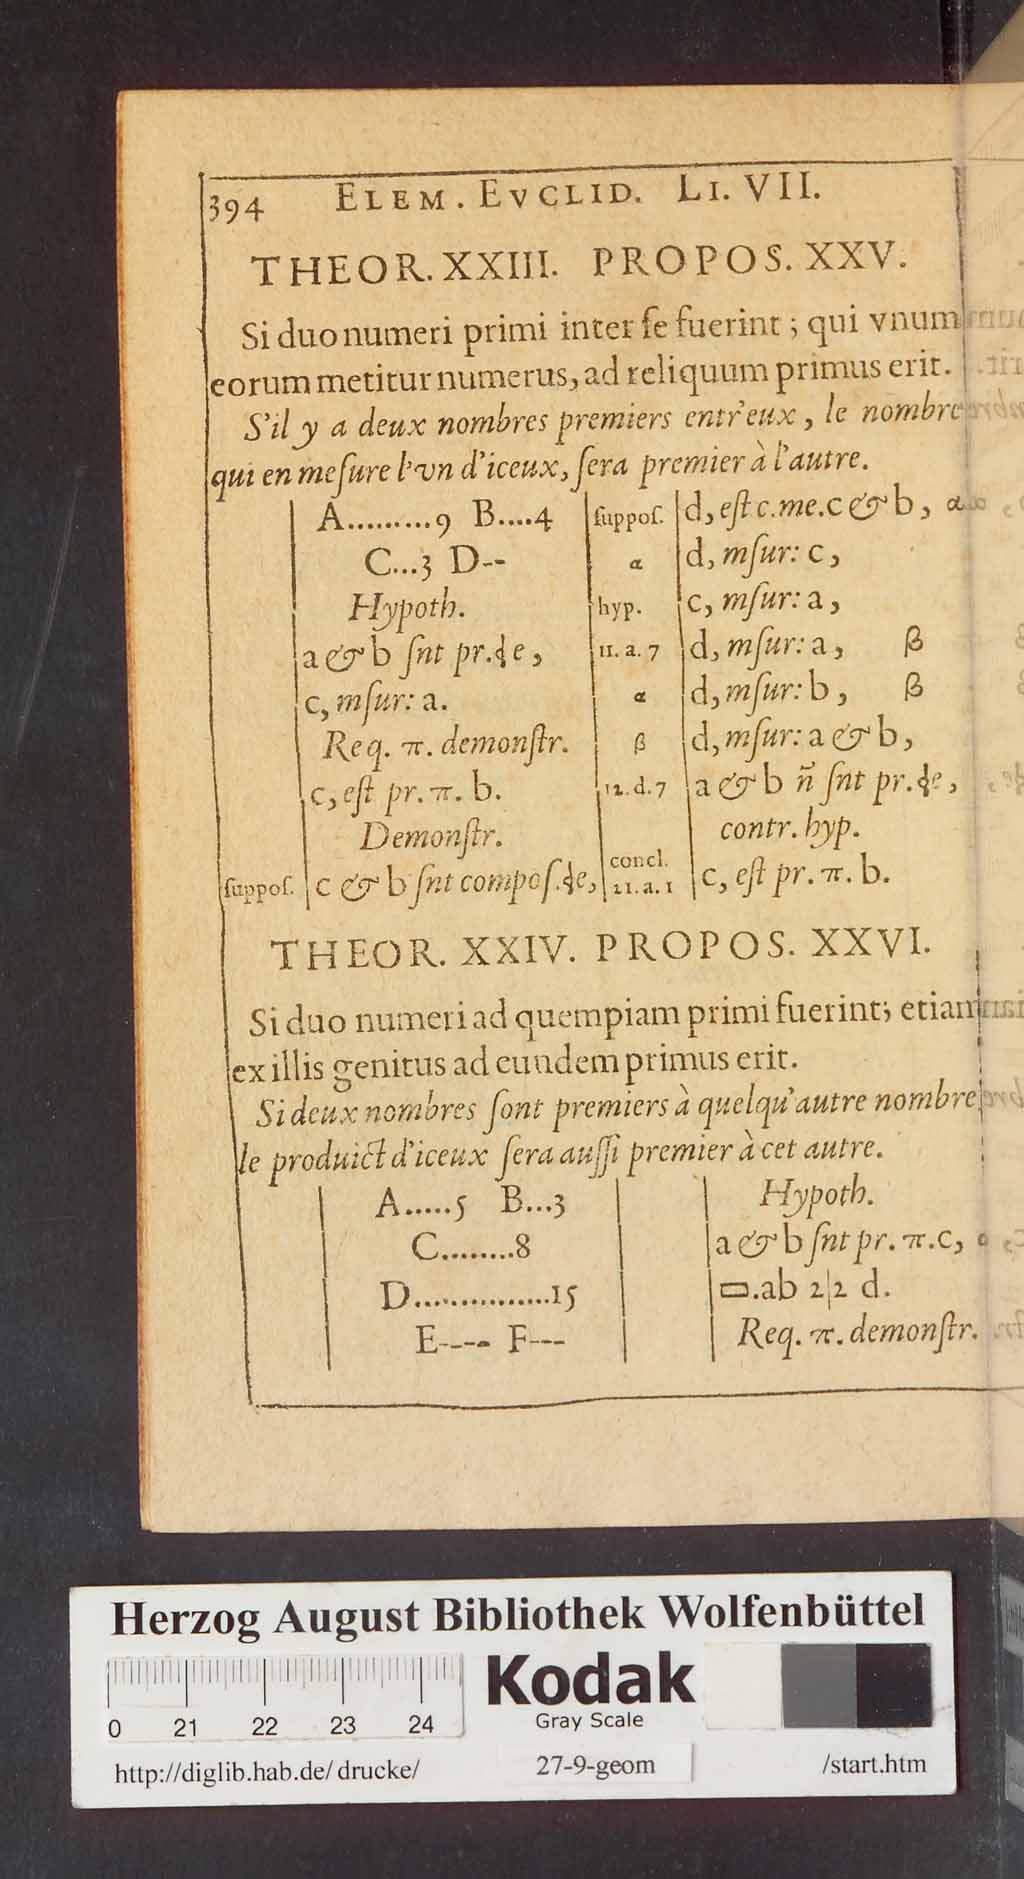 394 ELEM. EVCLID. LI. VII.
THEOR. XXIII. PROPOS. XXV.
Si duo numeri primi inter ſe fuerint; qui vnum
eorum metitur numerus, ad reliquum primus erit.
S'il y a deux nombres premiers entr'eux, le nombre
qui en meſure l'vn d'iceux, ſera premier à l'autre.
A.........9 B....4
C...3 D--
Hypoth.
a & b ſnt pr. e,
c, mſur: a.
Req. π. demonſtr.
c, eſt pr. π. b.
Demonſtr.
ſuppoſ. c & b ſnt compoſ. e,
ſuppoſ. d, eſt c. me. c & b, α
α d, mſur: c,
hyp. c, mſur: a,
11. a. 7 d, mſur: a, β
α d, mſur: b, β
β d, mſur: a & b,
12. d. 7 a & b ñ ſnt pr. e,
contr. hyp.
concl.
21. a. 1 c, eſt pr. π. b.
THEOR. XXIV. PROPOS. XXVI.
Si duo numeri ad quempiam primi fuerint; etiam
ex illis genitus ad eundem primus erit.
Si deux nombres ſont premiers à quelqu'autre nombre
le produict d'iceux ſera auſſi premier à cet autre.
A.....5 B...3
C........8
D...............15
E---- F---
Hypoth.
a & b ſnt pr. π. c,
▭.ab 2|2 d.
Req. π. demonſtr.
Herzog August Bibliothek Wolfenbüttel
0 21 22 23 24
Kodak
Gray Scale
http://diglib.hab.de/drucke/ 27-9-geom /start.htm